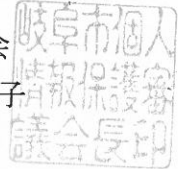 子
岐阜市個人
情報保護審
議会長印